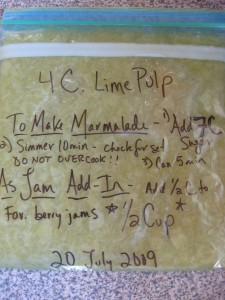 4 C. Lime Pulp
To Make Marmalade - 1) Add 7C Sugar
2) Simmer 10 min - check for set
DO NOT OVERCOOK!! 3) Can 5 min
As Jam Add-In - Add 1/2 C to
Fav. berry jams * 1/2 Cup *
20 July 2009